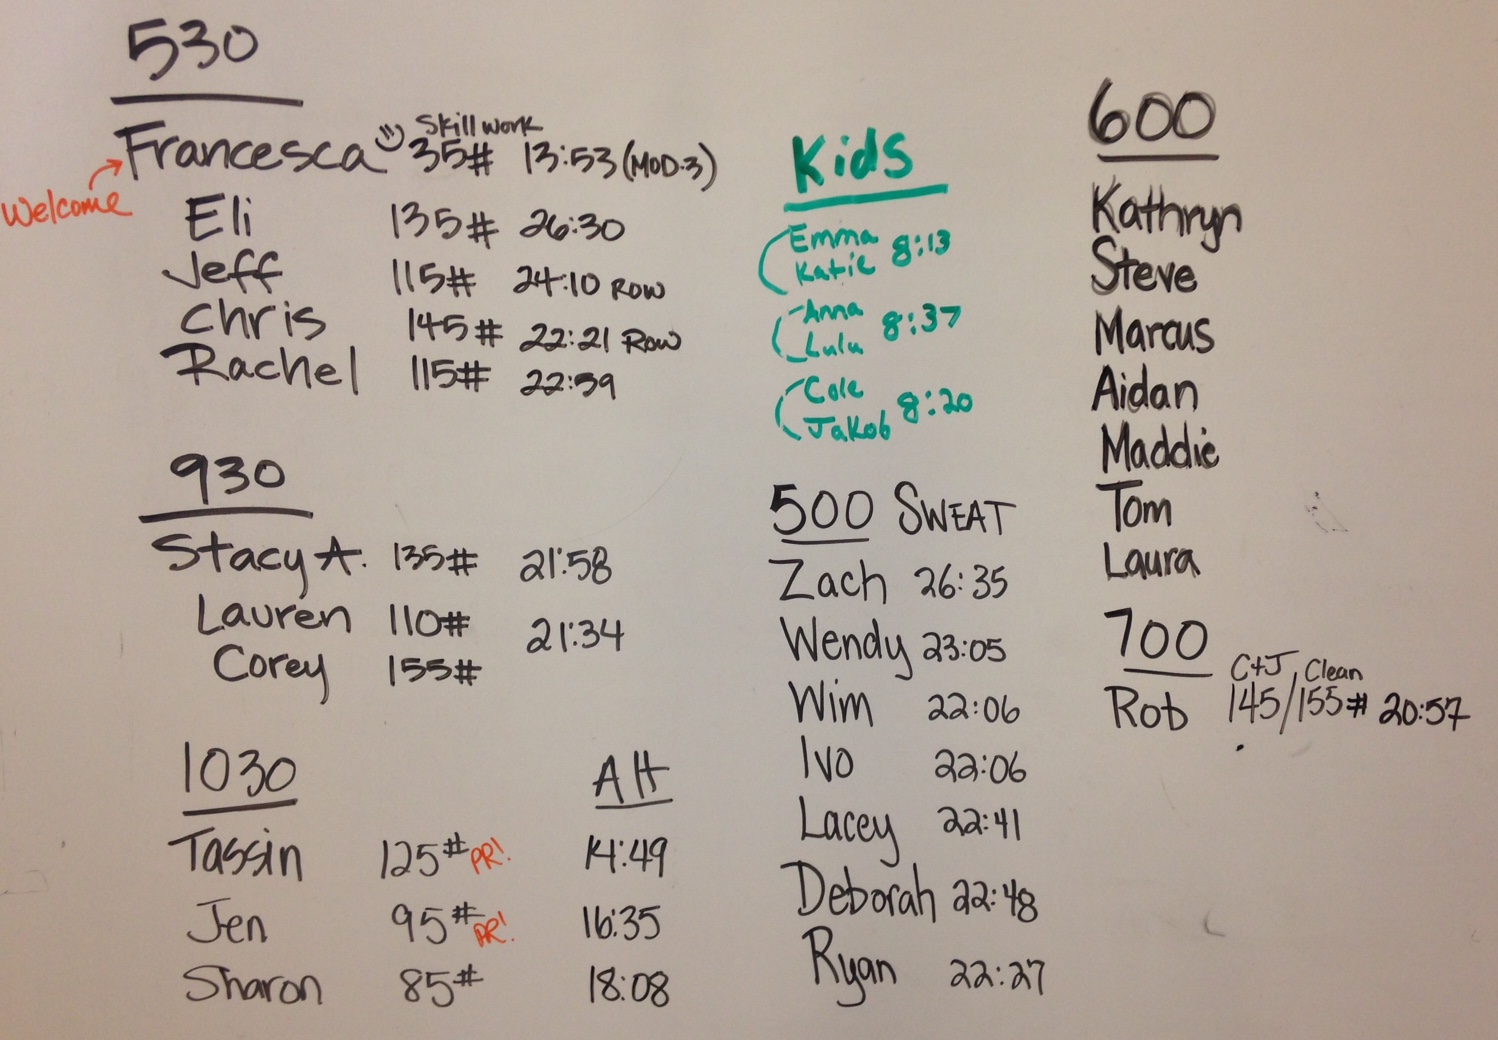 530
Skill work
Francesca 35# 13:53 (MOD.3)
Welcome
Eli 135# 26:30
Jeff 115# 24:10 ROW
Chris 145# 22:21 ROW
Rachel 115# 22:59
930
Stacy A. 135# 21:58
Lauren 110# 21:34
Corey 155#
1030 Alt
Tassin 125# PR! 14:49
Jen 95# PR! 16:35
Sharon 85# 18:08
Kids
Emma
Katie 8:13
Anna
Lulu 8:37
Cole
Jakob 8:20
500 SWEAT
Zach 26:35
Wendy 23:05
Wim 22:06
Ivo 22:06
Lacey 22:41
Deborah 22:48
Ryan 22:27
600
Kathryn
Steve
Marcus
Aidan
Maddie
Tom
Laura
700
C+J / Clean
Rob 145/155# 20:57